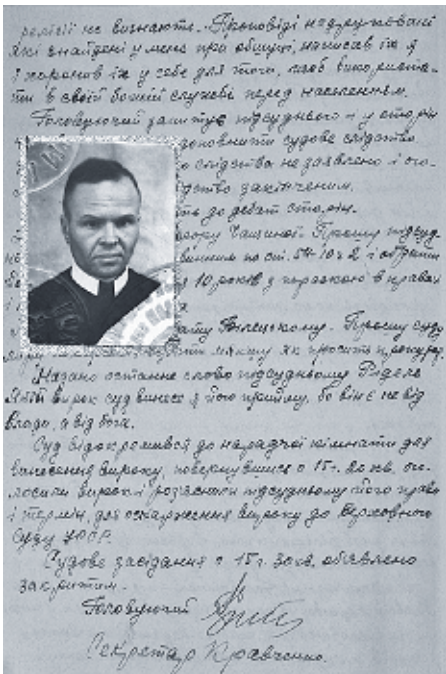 релігії не визнають. Проповіді надруковані
які знайдені у мене при обшуку, написав їх я
і хоронов їх у себе для того, щоб використа-
ти в своїй божій службі перед населенням.
Головуючий запитує підсудного і у сторін
доповнити судове слідство
слідства не заявлено і ого-
закінченим.
до дебат сторін.
Прошу підсуд-
по ст. 54-10 ч 2 і
10 років з поразкою в правах
Прошу суд
як просить прокурор.
Надано останнє слово підсудньому
Який вирок суд винесе я його прийму, бо він є не від
влади, а від бога.
Суд відокремився до нарадчої кімнати для
винесення вироку, повернувшися о 15 г. 20 хв. ог-
лосили вирок і роз'яснили підсудньому його право
і термін, для оскарження вироку до Верховного
Суду УРСР.
Судове засідання о 15 г. 30 хв. об'явлено
закритим.
Головуючий
Секретар Кравченко.